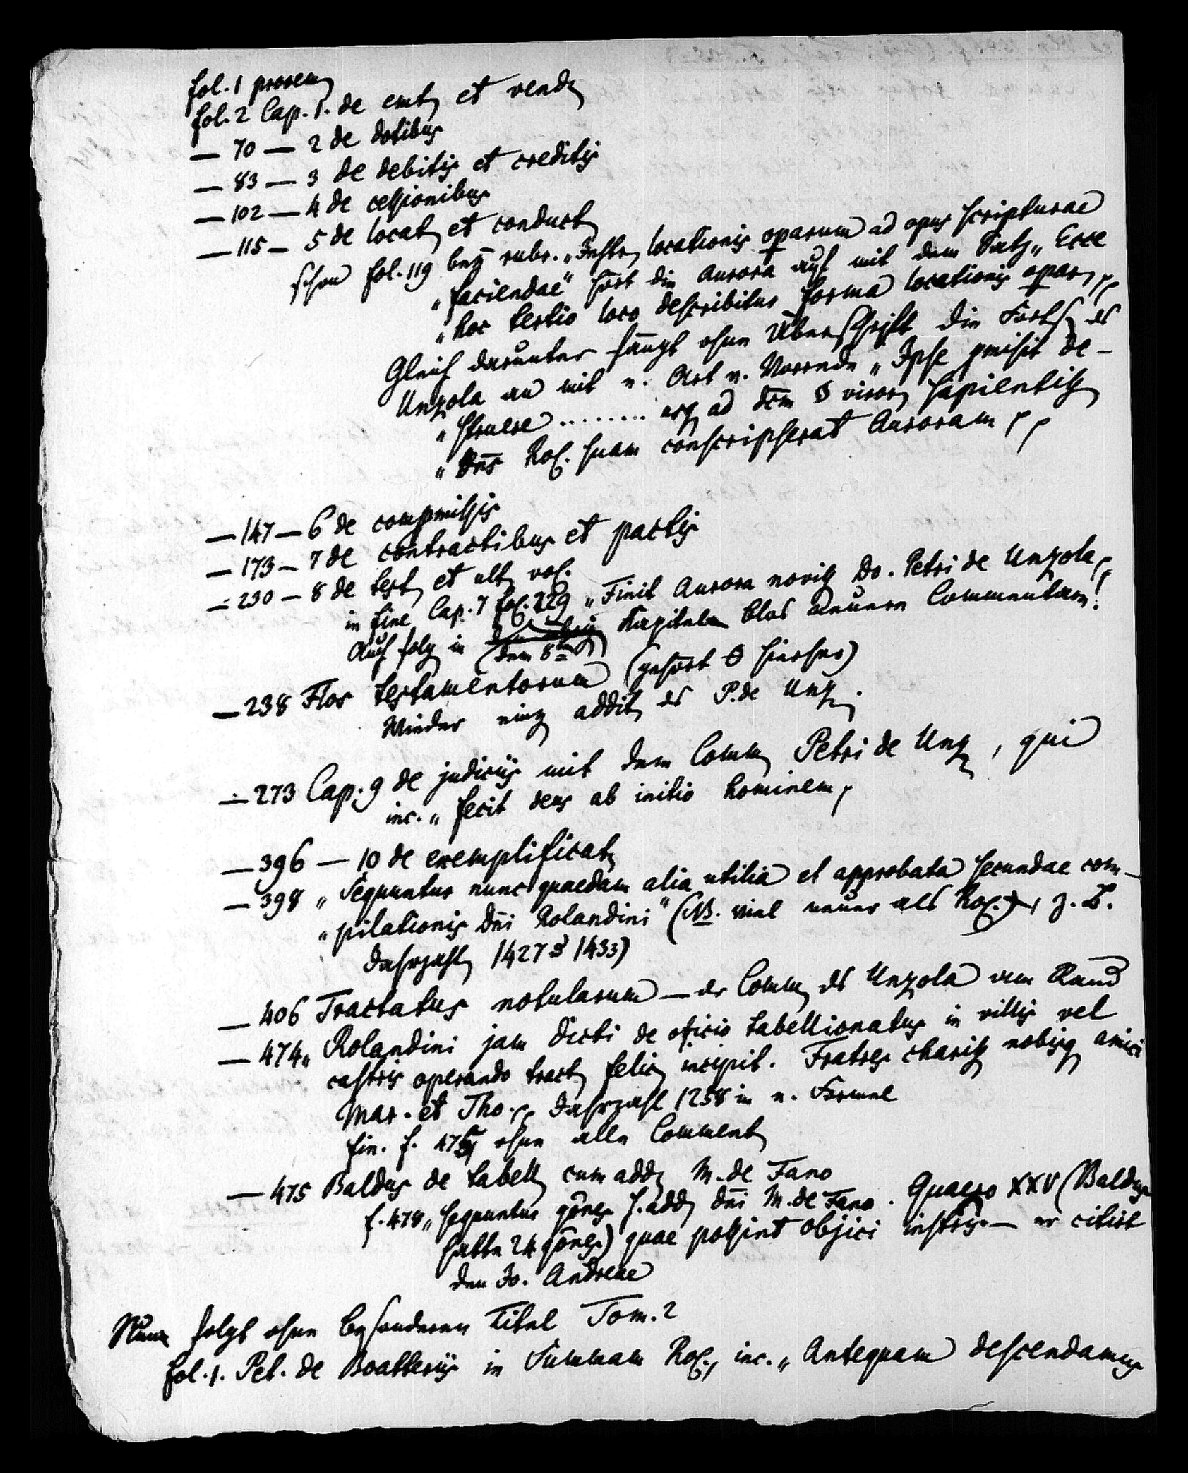 fol. 1 prooem
fol. 2 Cap. 1. de emt et vend
— 70 — 2 de dotibus
— 83 — 3 de debitis et creditis
— 102 — 4 de cessionibus
— 115 — 5 de locat et conduct
schon fol. 119 bey rubr. „Instr locationis operarum ad opus scripturae
„faciendae" hört die Aurora auf mit dem Satz „Ecce
„hoc tertio loco describitur forma locationis operar
Gleich darunter fängt ohne Überschrift die Forts des
Unzola an mit e. Art v. Vorrede „Ipse misit de-
„struere ........ ad viror sapientiss
„dns Rol. suam conscripserat Auroram
— 147 — 6 de compmissis
— 173 — 7 de contractibus et pactis
— 230 — 8 de test et ult vol.
in fine Cap. 7 fol. 229 „Finit Aurora noviss Do. Petri de Unzola
Auch folg in dem 8ten Kapitel blos neuere Commentare!
— 238 Flos testamentorum (gehört hierher)
Wieder einz addit des P. de Unz.
— 273 Cap. 9 de judiciis mit dem Comm Petri de Unz, qui
inc. „fecit deus ab initio hominem,
— 396 — 10 de exemplificat
— 398 „Sequuntur nunc quaedam alia utilia et approbata secundae com-
„pilationis dni Rolandini" (NB. viel neuer als Rol. z. B.
Jahrzahl 1427 1433)
— 406 Tractatus notularum — der Comm des Unzola am Rand
— 474 „Rolandini jam dicti de oficio tabellionatus in villis vel
castris operando tract felic incipit. Fratres chariss nobisq amici
Mar. et Tho. Jahrzahl 1258 in e. Formel
fin. f. 475 ohne alle Comment
— 475 Baldus de tabell cum add M. de Fano
f. 478 „sequuntur qones s. add dni M. de Fano. Quaero XXV (Baldus
hatte 24 qones) quae possint objici instris — er citirt
den Jo. Andreae
Nun folgt ohne besonderen Titel Tom. 2
fol. 1. Pet. de Boatteriis in Summam Rol., inc. „Antequam descendamus